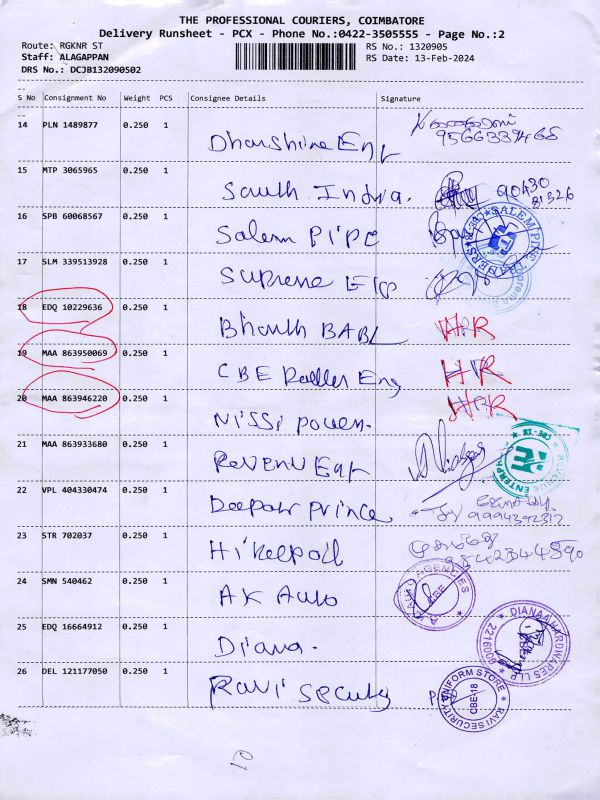 THE PROFESSIONAL COURIERS, COIMBATORE
Delivery Runsheet - PCX - Phone No.:0422-3505555 - Page No.:2
Route: RGKNR ST
RS No.: 1320905
Staff: ALAGAPPAN
RS Date: 13-Feb-2024
DRS No.: DCJB132090502
S No Consignment No Weight PCS Consignee Details Signature
14 PLN 1489877 0.250 1
15 MTP 3065965 0.250 1 South India. 90430
81326
16 SPB 60068567 0.250 1 Salem Pipe
17 SLM 339513928 0.250 1 Supreme
18 EDQ 10229636 0.250 1 Bharath BABL
19 MAA 863950069 0.250 1 CBE Roller Eng HR
20 MAA 863946220 0.250 1 Nissi Power.
21 MAA 863933680 0.250 1
22 VPL 404330474 0.250 1 Prince 9994392312
23 STR 702037 0.250 1
24 SMN 540462 0.250 1 AK Auto
AGENCIES
CBE
25 EDQ 16664912 0.250 1 Diana.
DIANAA HARDWARES LLP
26 DEL 121177050 0.250 1 Ravi Security
RAVI SECURITY UNIFORM STORE
CBE-18